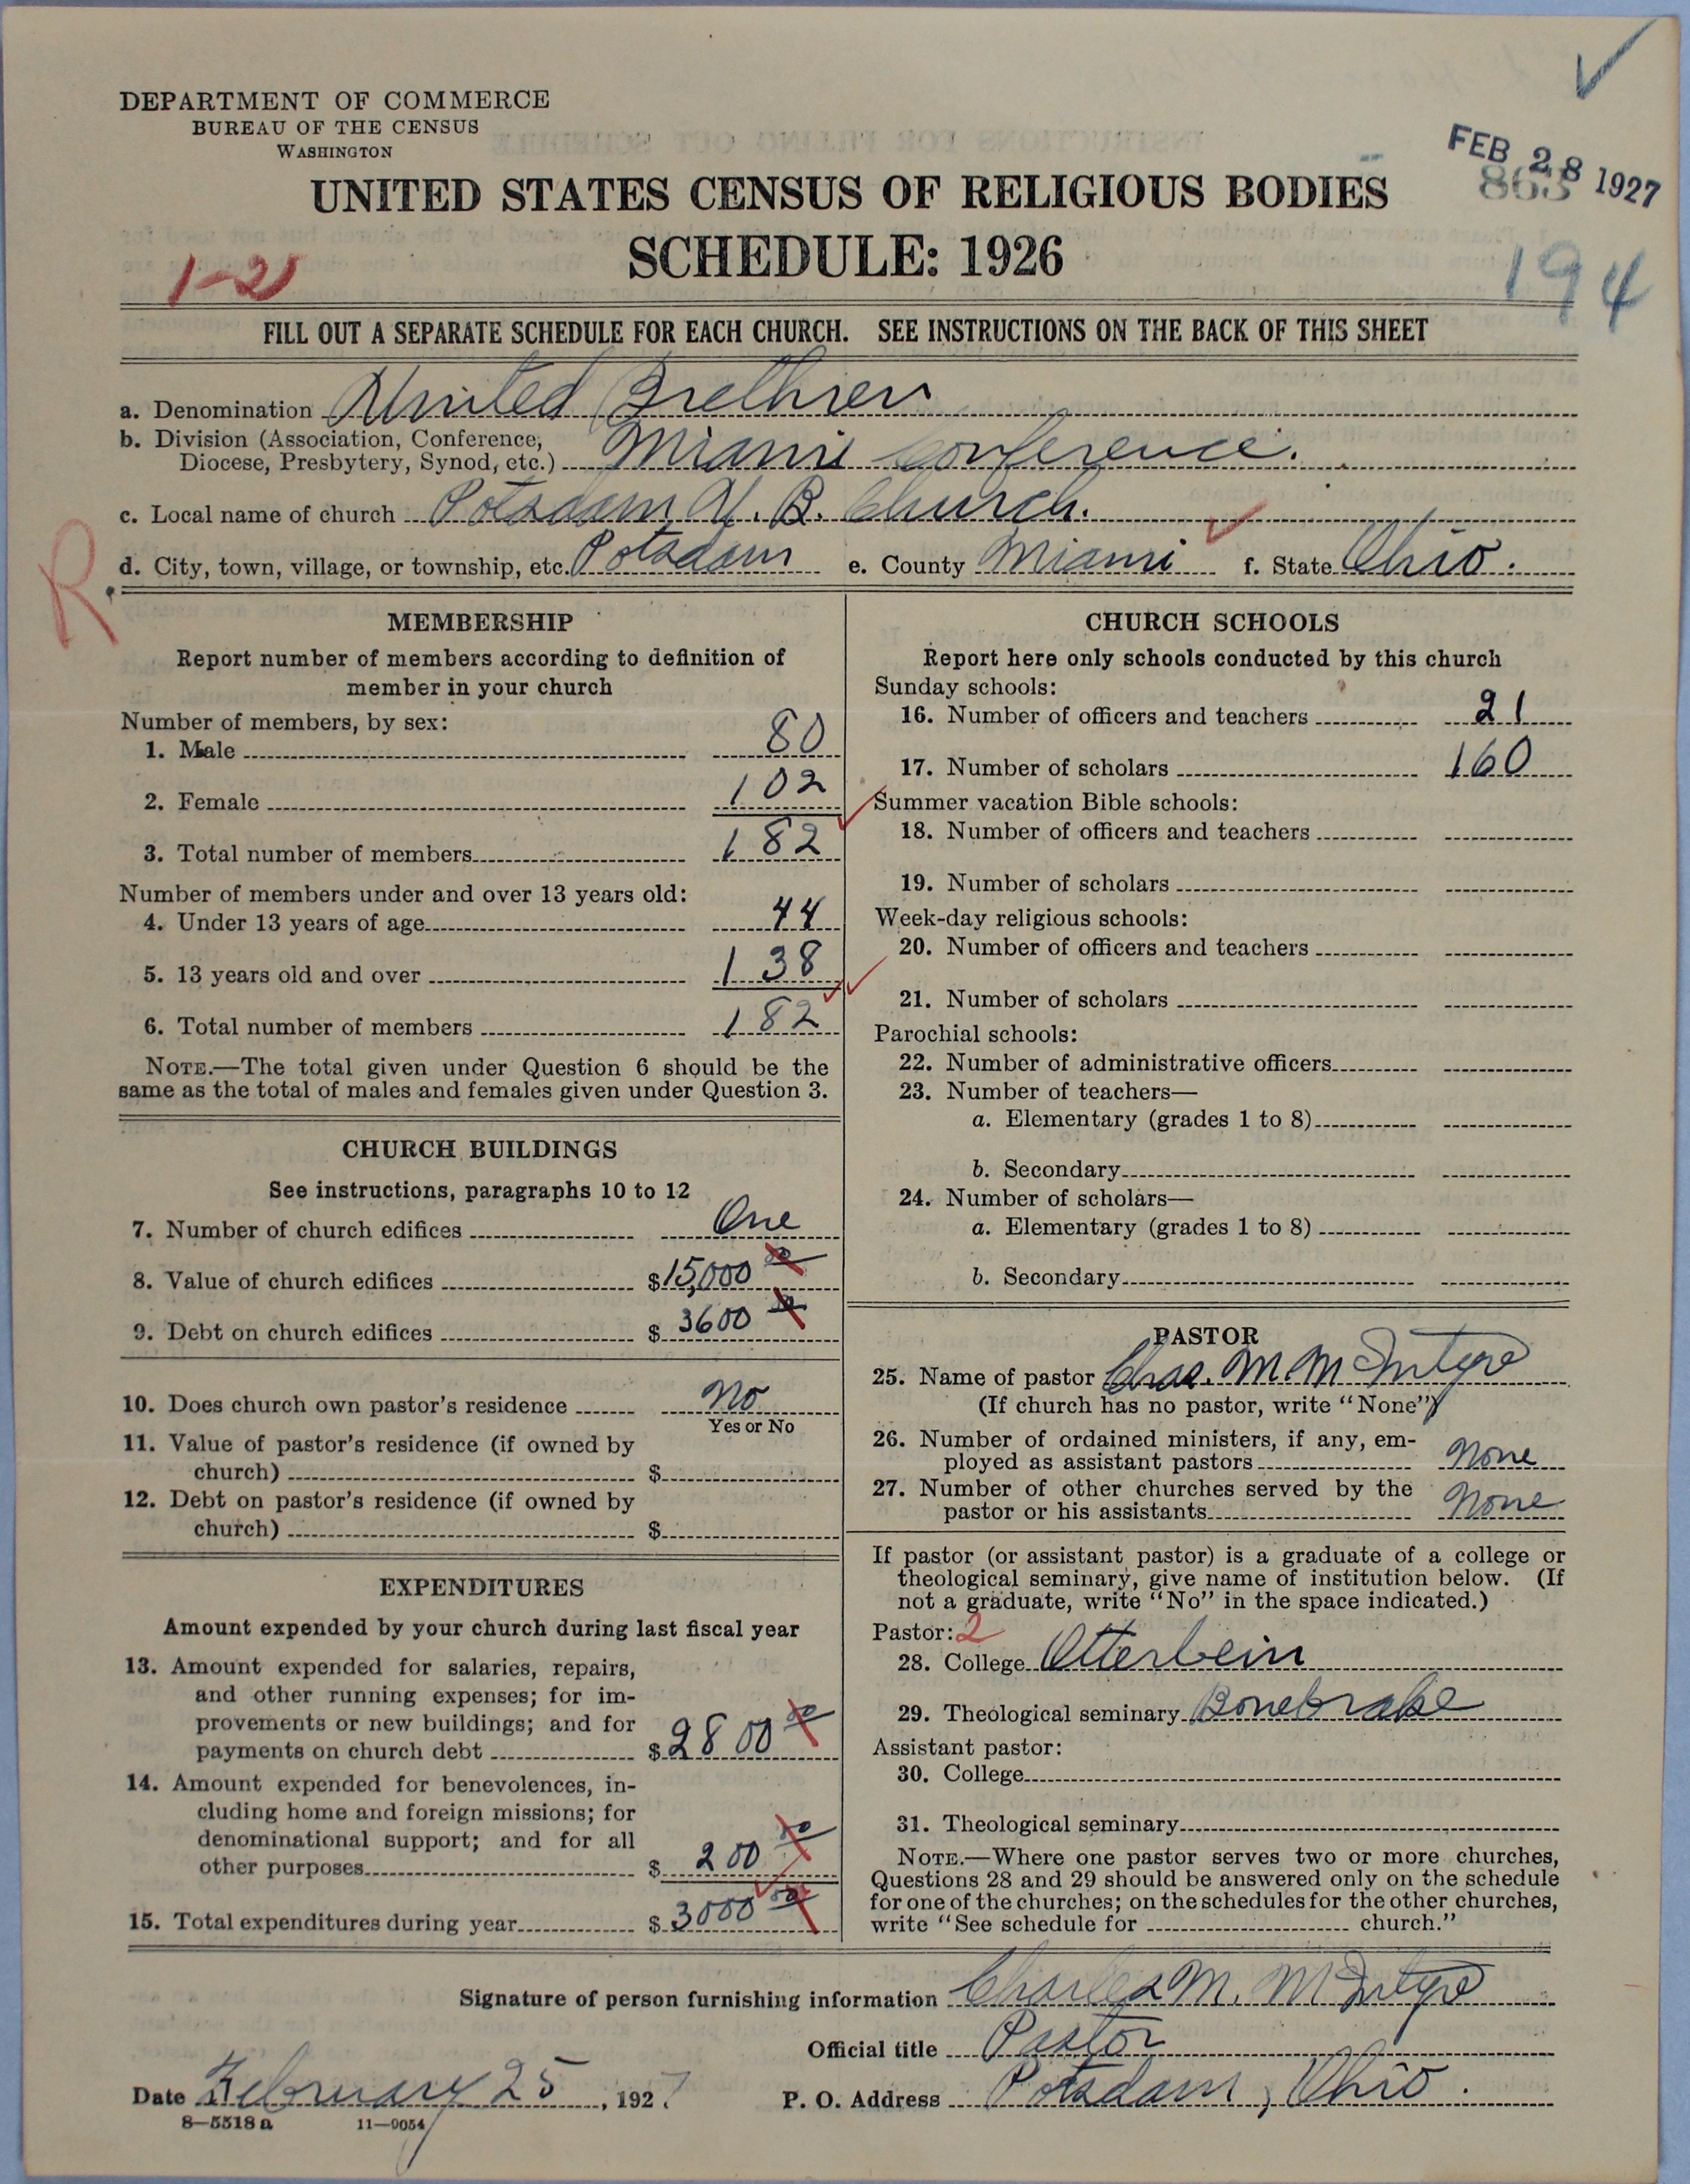 DEPARTMENT OF COMMERCE
BUREAU OF THE CENSUS
WASHINGTON
FEB 28 1927
863
UNITED STATES CENSUS OF RELIGIOUS BODIES
SCHEDULE: 1926
1-2
194
FILL OUT A SEPARATE SCHEDULE FOR EACH CHURCH. SEE INSTRUCTIONS ON THE BACK OF THIS SHEET
a. Denomination United Brethren
b. Division (Association, Conference,
Diocese, Presbytery, Synod, etc.) Miami Conference.
c. Local name of church Potsdam U. B. Church.
R.
d. City, town, village, or township, etc. Potsdam e. County Miami f. State Ohio.
MEMBERSHIP
Report number of members according to definition of
member in your church
Number of members, by sex:
1. Male 80
2. Female 102
3. Total number of members 182
Number of members under and over 13 years old:
4. Under 13 years of age 44
5. 13 years old and over 138
6. Total number of members 182
NOTE.—The total given under Question 6 should be the
same as the total of males and females given under Question 3.
CHURCH BUILDINGS
See instructions, paragraphs 10 to 12
7. Number of church edifices One
8. Value of church edifices $15,000 00
9. Debt on church edifices $ 3600 00
10. Does church own pastor's residence No
Yes or No
11. Value of pastor's residence (if owned by
church) $
12. Debt on pastor's residence (if owned by
church) $
EXPENDITURES
Amount expended by your church during last fiscal year
13. Amount expended for salaries, repairs,
and other running expenses; for im-
provements or new buildings; and for
payments on church debt $ 2800 00
14. Amount expended for benevolences, in-
cluding home and foreign missions; for
denominational support; and for all
other purposes $ 200 00
15. Total expenditures during year $ 3000 00
CHURCH SCHOOLS
Report here only schools conducted by this church
Sunday schools:
16. Number of officers and teachers 21
17. Number of scholars 160
Summer vacation Bible schools:
18. Number of officers and teachers
19. Number of scholars
Week-day religious schools:
20. Number of officers and teachers
21. Number of scholars
Parochial schools:
22. Number of administrative officers
23. Number of teachers—
a. Elementary (grades 1 to 8)
b. Secondary
24. Number of scholars—
a. Elementary (grades 1 to 8)
b. Secondary
PASTOR
25. Name of pastor Chas. M. McIntyre
(If church has no pastor, write "None")
26. Number of ordained ministers, if any, em-
ployed as assistant pastors None
27. Number of other churches served by the
pastor or his assistants None
If pastor (or assistant pastor) is a graduate of a college or
theological seminary, give name of institution below. (If
not a graduate, write "No" in the space indicated.)
Pastor: 2
28. College Otterbein
29. Theological seminary Bonebrake
Assistant pastor:
30. College
31. Theological seminary
NOTE.—Where one pastor serves two or more churches,
Questions 28 and 29 should be answered only on the schedule
for one of the churches; on the schedules for the other churches,
write "See schedule for church."
Signature of person furnishing information Charles M. McIntyre
Official title Pastor
Date February 25, 1927 P. O. Address Potsdam, Ohio.
8—5518a 11—9054